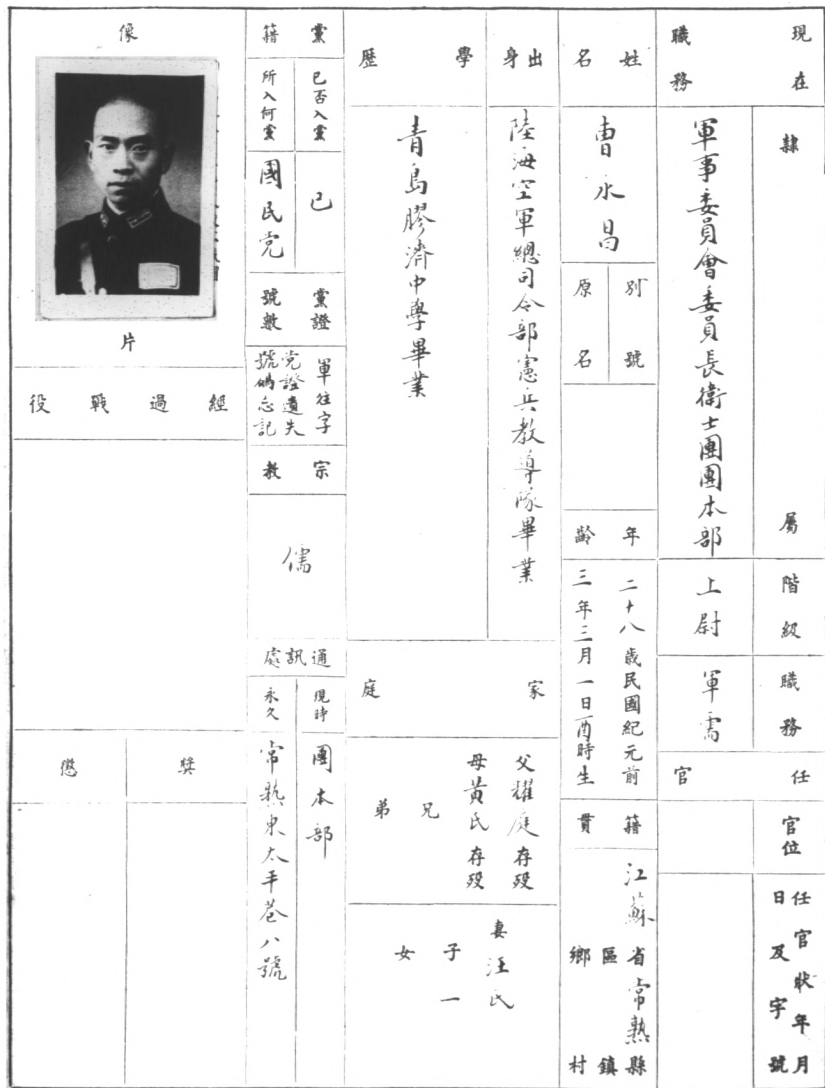 現在職務
隸屬
軍事委員會委員長衛士團團本部
階級
上尉
職務
軍需
任官
官位
任官狀年月日及字號
姓名
曹永昌
別號
原名
年齡
二十八歲民國紀元前三年三月一日酉時生
籍貫
江蘇省常熟縣
區
鎮
鄉
村
出身
陸海空軍總司令部憲兵教導隊畢業
學歷
青島膠濟中學畢業
家庭
父耀庭存歿
母黃氏存歿
兄
弟
妻汪氏
子一
女
黨籍
已否入黨
已
所入何黨
國民党
黨證號數
軍往字
党證遺失
號碼忘記
宗教
儒
通訊處
現時
團本部
永久
常熟東太平巷八號
像
片
經過戰役
獎
懲